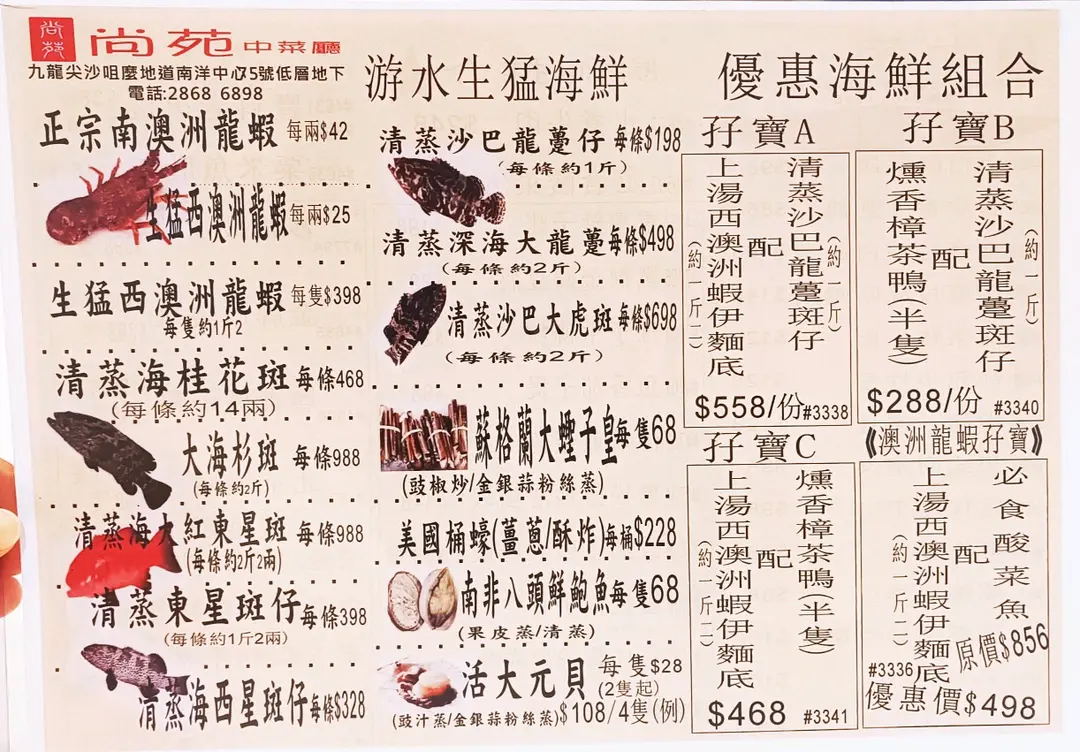 尚苑
尚苑中菜廳
九龍尖沙咀麼地道南洋中心75號低層地下
電話:2868 6898
正宗南澳洲龍蝦 每兩$42
生猛西澳洲龍蝦 每兩$25
生猛西澳洲龍蝦 每隻$398
每隻約1斤2
清蒸海桂花斑 每條468
(每條約14兩)
大海杉斑 每條988
(每條約2斤)
清蒸海大紅東星斑 每條988
(每條約2斤2兩)
清蒸東星斑仔 每條398
(每條約1斤2兩)
清蒸海西星斑仔 每條$328
游水生猛海鮮
清蒸沙巴龍躉仔 每條$198
(每條約1斤)
清蒸深海大龍躉 每條$498
(每條約2斤)
清蒸沙巴大虎斑 每條$698
(每條約2斤)
蘇格蘭大蟶子皇 每隻68
(豉椒炒/金銀蒜粉絲蒸)
美國桶蠔(薑蔥/酥炸)每桶$228
南非八頭鮮鮑魚 每隻68
(果皮蒸/清蒸)
活大元貝 每隻$28
(2隻起)
(豉汁蒸/金銀蒜粉絲蒸)$108/4隻(例)
優惠海鮮組合
孖寶A
清蒸沙巴龍躉斑仔
(約一斤)
配
上湯西澳洲蝦伊麵底
(約一斤二)
$558/份 #3338
孖寶B
清蒸沙巴龍躉斑仔
(約一斤)
配
燻香樟茶鴨(半隻)
$288/份 #3340
孖寶C
燻香樟茶鴨(半隻)
配
上湯西澳洲蝦伊麵底
(約一斤二)
$468 #3341
《澳洲龍蝦孖寶》
必食酸菜魚
配
上湯西澳洲蝦伊麵底
(約一斤二)
原價$856
#3336
優惠價$498